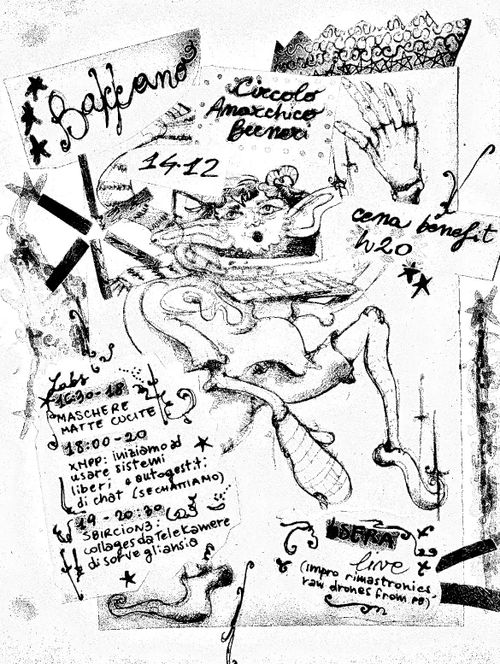 Baffano
Circolo
Anarchico
Berneri
14.12
cena benefit
h20
Labs
16:30-18
MASCHERE
MATTE CUCITE
18:00-20
XMPP: iniziamo ad
usare sistemi
liberi e autogestiti
di chat (SECHATTIAMO)
19-20:30
SBIRCION3:
collages da telekamere
di sorvegliansia
SERA
live
(impro rimastronics,
raw drones from PB)